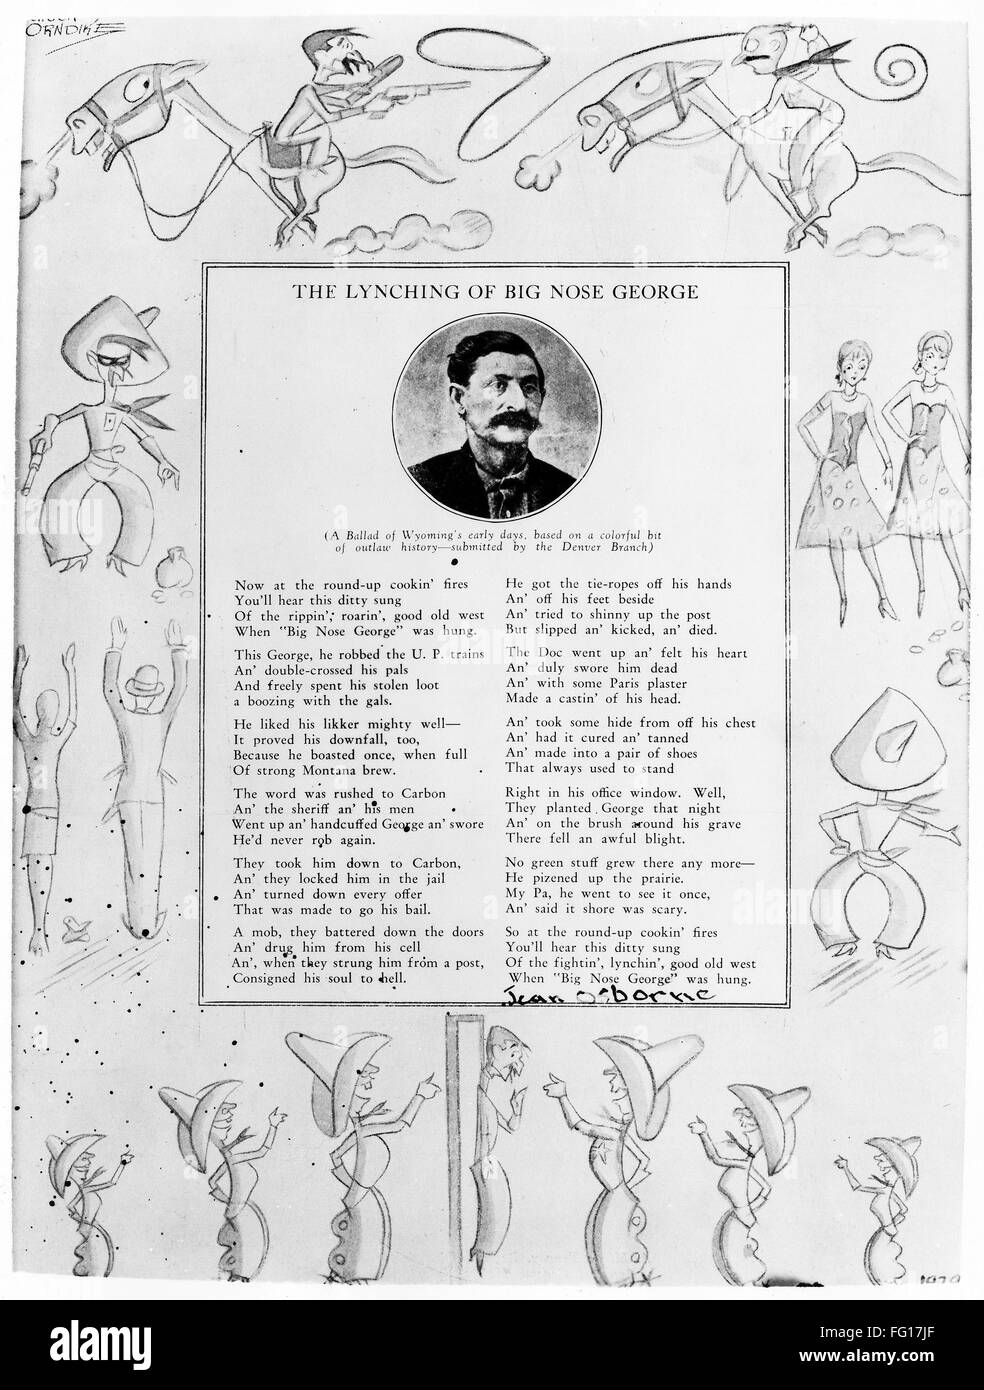 ORNDIKE
THE LYNCHING OF BIG NOSE GEORGE
(A Ballad of Wyoming's early days, based on a colorful bit
of outlaw history—submitted by the Denver Branch)
Now at the round-up cookin' fires
You'll hear this ditty sung
Of the rippin', roarin', good old west
When "Big Nose George" was hung.
This George, he robbed the U. P. trains
An' double-crossed his pals
And freely spent his stolen loot
a boozing with the gals.
He liked his likker mighty well—
It proved his downfall, too,
Because he boasted once, when full
Of strong Montana brew.
The word was rushed to Carbon
An' the sheriff an' his men
Went up an' handcuffed George an' swore
He'd never rob again.
They took him down to Carbon,
An' they locked him in the jail
An' turned down every offer
That was made to go his bail.
A mob, they battered down the doors
An' drug him from his cell
An', when they strung him from a post,
Consigned his soul to hell.
He got the tie-ropes off his hands
An' off his feet beside
An' tried to shinny up the post
But slipped an' kicked, an' died.
The Doc went up an' felt his heart
An' duly swore him dead
An' with some Paris plaster
Made a castin' of his head.
An' took some hide from off his chest
An' had it cured an' tanned
An' made into a pair of shoes
That always used to stand
Right in his office window. Well,
They planted George that night
An' on the brush around his grave
There fell an awful blight.
No green stuff grew there any more—
He pizened up the prairie.
My Pa, he went to see it once,
An' said it shore was scary.
So at the round-up cookin' fires
You'll hear this ditty sung
Of the fightin', lynchin', good old west
When "Big Nose George" was hung.
Jean Osborne
alamy
Image ID: FG17JF
www.alamy.com